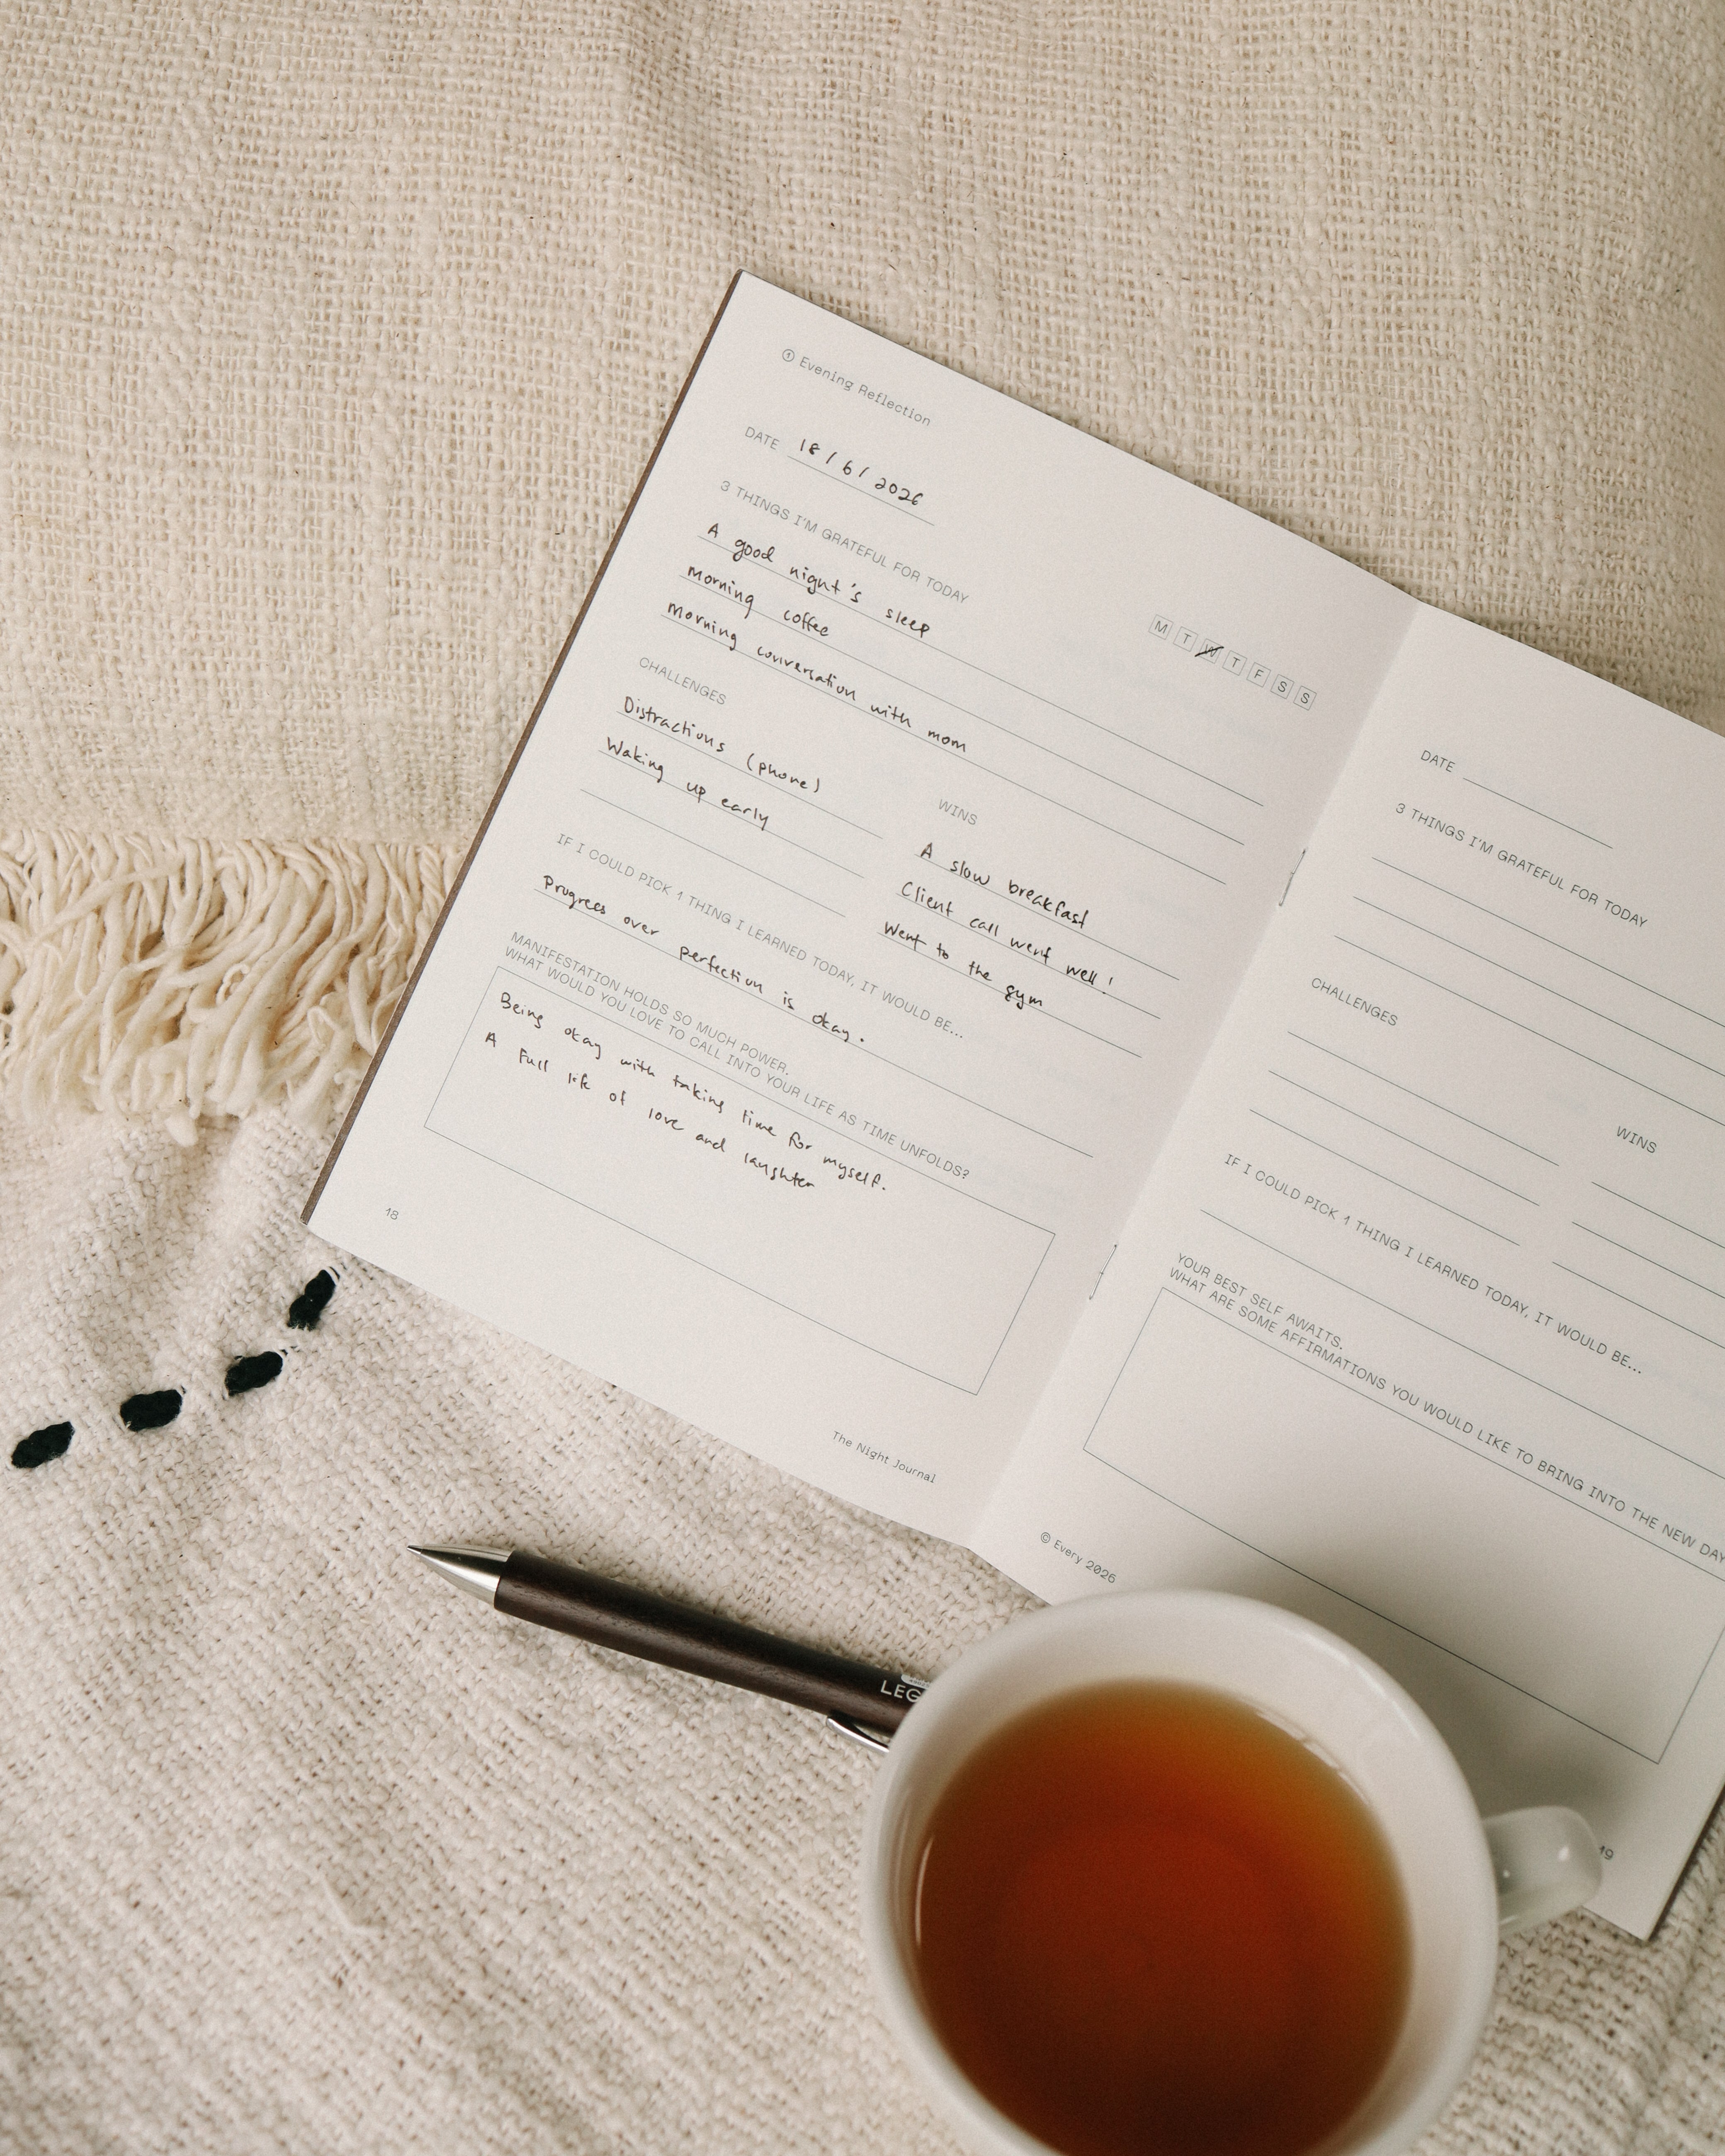 ① Evening Reflection
DATE 18/6/2026
M T W T F S S
3 THINGS I'M GRATEFUL FOR TODAY
A good night's sleep
morning coffee
morning conversation with mom
CHALLENGES
Distractions (phone)
Waking up early
WINS
A slow breakfast
Client call went well!
Went to the gym
IF I COULD PICK 1 THING I LEARNED TODAY, IT WOULD BE...
Progress over perfection is okay.
MANIFESTATION HOLDS SO MUCH POWER.
WHAT WOULD YOU LOVE TO CALL INTO YOUR LIFE AS TIME UNFOLDS?
Being okay with taking time for myself.
A full life of love and laughter
18
The Night Journal
DATE
3 THINGS I'M GRATEFUL FOR TODAY
CHALLENGES
WINS
IF I COULD PICK 1 THING I LEARNED TODAY, IT WOULD BE...
YOUR BEST SELF AWAITS.
WHAT ARE SOME AFFIRMATIONS YOU WOULD LIKE TO BRING INTO THE NEW DAY
© Every 2026
19
LEG